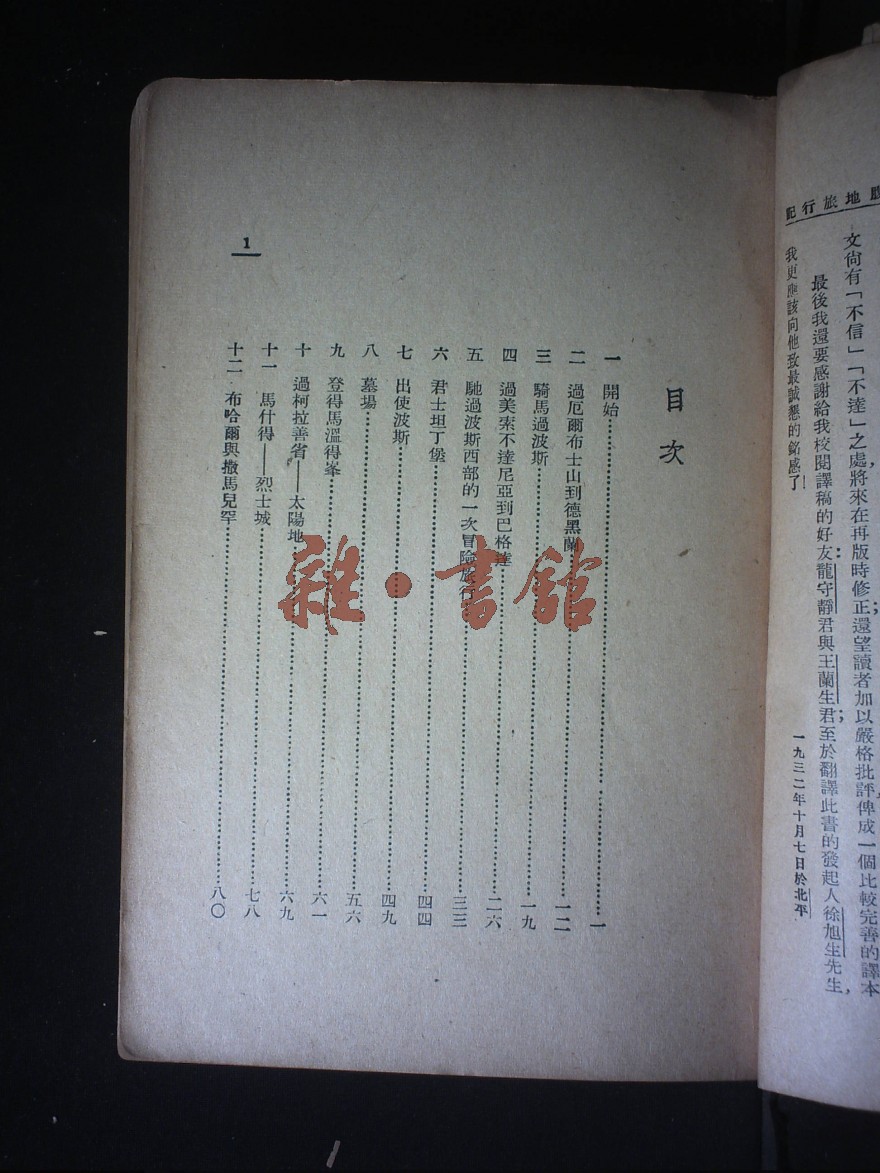 地旅行記
文尙有「不信」「不達」之處，將來在再版時修正；還望讀者加以嚴格批評，俾成一個比較完善的譯本。
最後我還要感謝給我校閱譯稿的好友：龍守靜君與王蘭生君；至於翻譯此書的發起人徐旭生先生，
我更應該向他致最誠懇的銘感了！
一九三二年十月七日於北平
目次
一 開始 一
二 過厄爾布士山到德黑蘭 一二
三 騎馬過波斯 一九
四 過美索不達尼亞到巴格達 二六
五 馳過波斯西部的一次冒險旅行 三三
六 君士坦丁堡 四四
七 出使波斯 四九
八 墓場 五六
九 登得馬溫得峯 六一
十 過柯拉善省——太陽地 六九
十一 馬什得——烈士城 七八
十二 布哈爾與撒馬兒罕 八〇
1
雜·書館